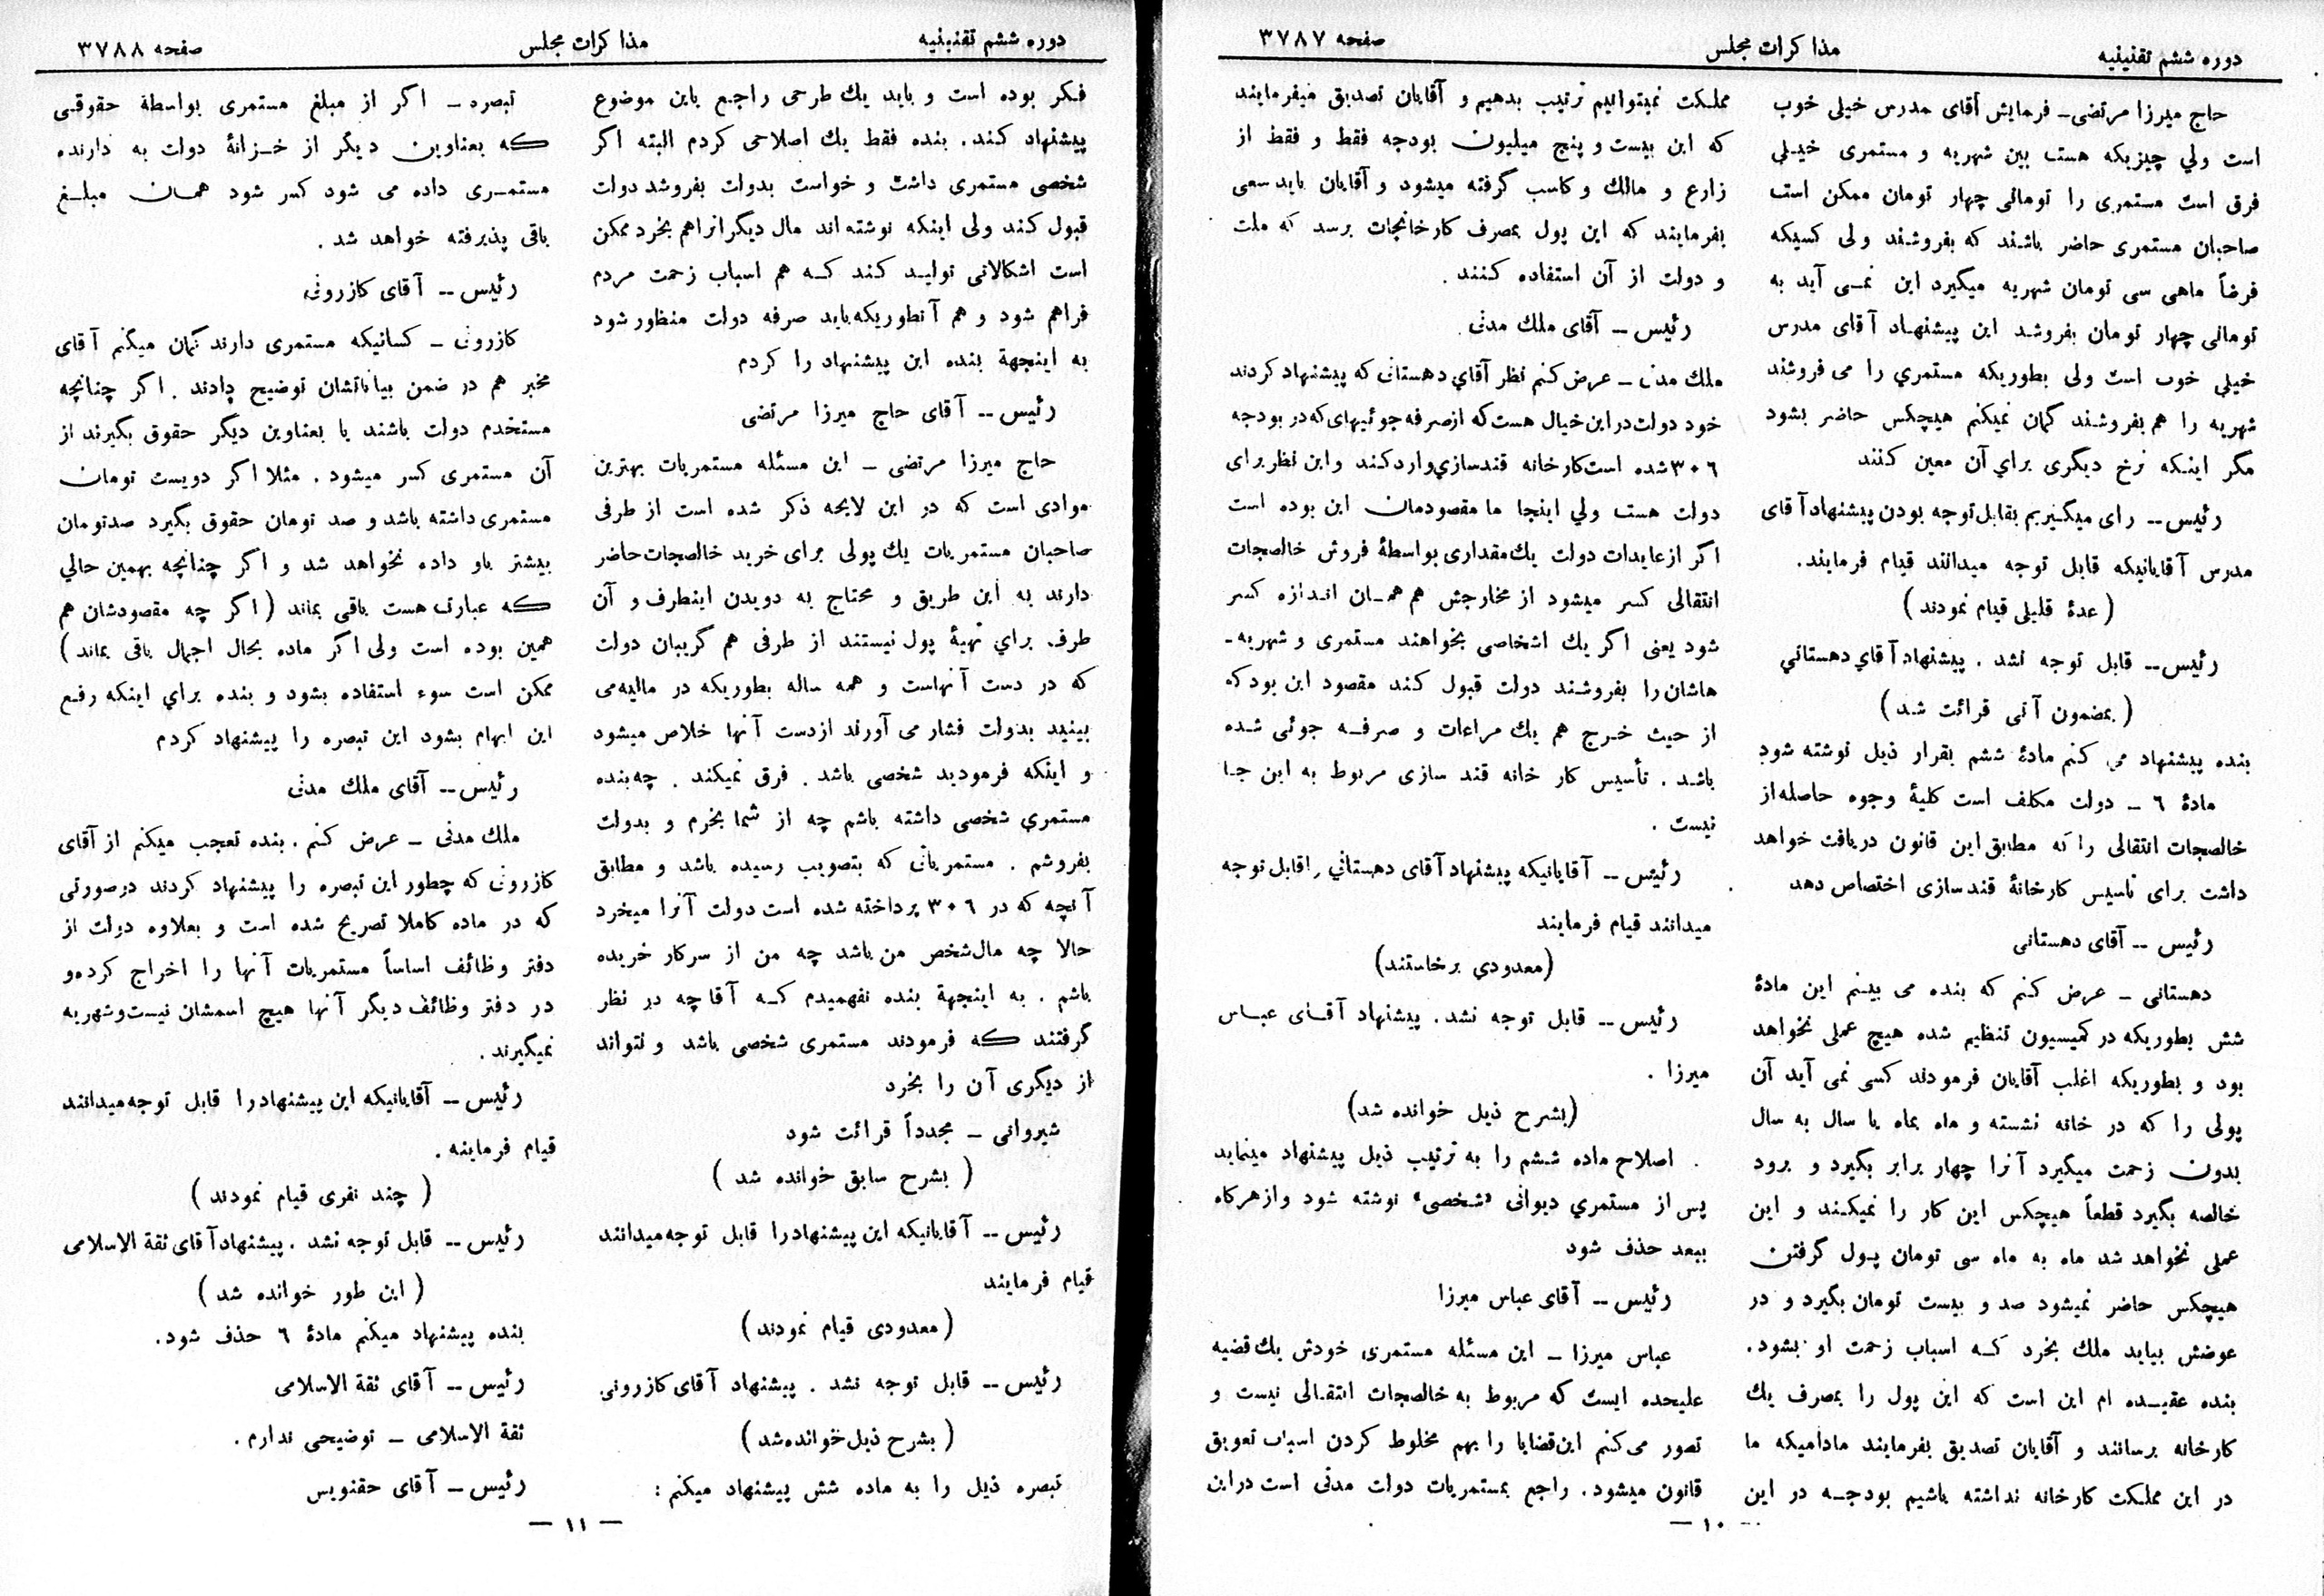 دوره ششم تقنینیه مذاکرات مجلس صفحه ۳۷۸۷
حاج میرزا مرتضی ـ فرمایش آقای مدرس خیلی خوب
است ولي چیزیکه هست بین شهریه و مستمری خیلي
فرق است مستمری را تومانی چهار تومان ممکن است
صاحبان مستمری حاضر باشند که بفروشند ولی کسیکه
فرضاً ماهی سی تومان شهریه میگیرد این نمی آید به
تومانی چهار تومان بفروشد این پیشنهاد آقای مدرس
خیلی خوب است ولی بطوریکه مستمري را می فروشند
شهریه را هم بفروشند گمان نمیکنم هیچکس حاضر بشود
مگر اینکه نرخ دیگری براي آن معین کنند
رئیس ــ رای میگیریم بقابل توجه بودن پیشنهاد آقای
مدرس آقایانیکه قابل توجه میدانند قیام فرمایند.
(عدهٔ قلیلی قیام نمودند)
رئیس ــ قابل توجه نشد . پیشنهاد آقاي دهستاني
(بمضمون آتی قرائت شد)
بنده پیشنهاد می کنم مادهٔ ششم بقرار ذیل نوشته شود
مادهٔ ٦ ـ دولت مکلف است کلیهٔ وجوه حاصله از
خالصجات انتقالی را که مطابق این قانون دریافت خواهد
داشت برای تاسیس کارخانهٔ قند سازی اختصاص دهد
رئیس ــ آقای دهستانی
دهستانی ـ عرض کنم که بنده می بینم این مادهٔ
شش بطوریکه در کمیسیون تنظیم شده هیچ عملی نخواهد
بود و بطوریکه اغلب آقایان فرمودند کسی نمی آید آن
پولی را که در خانه نشسته و ماه بماه یا سال به سال
بدون زحمت میگیرد آنرا چهار برابر بگیرد و برود
خالصه بگیرد قطعاً هیچکس این کار را نمیکند و این
عملی نخواهد شد ماه به ماه سی تومان پول گرفتن
هیچکس حاضر نمیشود صد و بیست تومان بگیرد و در
عوضش بیاید ملك بخرد که اسباب زحمت او بشود.
بنده عقیده ام این است که این پول را بمصرف یك
کارخانه برسانند و آقایان تصدیق بفرمایند مادامیکه ما
در این مملکت کارخانه نداشته باشیم بودجه در این
مملکت نمیتوانیم ترتیب بدهیم و آقایان تصدیق میفرمایند
که این بیست و پنج میلیون بودجه فقط و فقط از
زارع و مالك و کاسب گرفته میشود و آقایان باید سعی
بفرمایند که این پول بمصرف کارخانجات برسد که ملت
و دولت از آن استفاده کنند .
رئیس ــ آقای ملك مدنی
ملك مدنی ـ عرض کنم نظر آقاي دهستانی که پیشنهاد کردند
خود دولت در این خیال هست که از صرفه جوئیهای که در بودجه
۳۰٦ شده است کارخانه قند سازي وارد کند و این نظر برای
دولت هست ولي اینجا ما مقصودمان این بوده است
اگر از عایدات دولت یك مقداری بواسطهٔ فروش خالصجات
انتقالی کسر میشود از مخارجش هم همان اندازه کسر
شود یعنی اگر یك اشخاصی بخواهند مستمری و شهریه ـ
هاشان را بفروشند دولت قبول کند مقصود این بود که
از حیث خرج هم یك مراعات و صرفه جوئی شده
باشد . تأسیس کار خانه قند سازی مربوط به این جا
نیست .
رئیس ــ آقایانیکه پیشنهاد آقای دهستاني را قابل توجه
میدانند قیام فرمایند
(معدودي برخاستند)
رئیس ــ قابل توجه نشد . پیشنهاد آقای عباس
میرزا .
(بشرح ذیل خوانده شد)
اصلاح ماده ششم را به ترتیب ذیل پیشنهاد مینماید
پس از مستمري دیوانی «شخصی» نوشته شود و از هرگاه
ببعد حذف شود
رئیس ــ آقای عباس میرزا
عباس میرزا ـ این مسئله مستمری خودش یك قضیه
علیحده ایست که مربوط به خالصجات انتقالی نیست و
تصور می کنم این قضایا را بهم مخلوط کردن اسباب تعویق
قانون میشود . راجع بمستمریات دولت مدتی است در این
ـ ۱۰ ـ
دوره ششم تقنینیه مذاکرات مجلس صفحه ۳۷۸۸
فکر بوده است و باید یك طرحی راجع باین موضوع
پیشنهاد کند . بنده فقط یك اصلاحی کردم البته اگر
شخصی مستمری داشت و خواست بدولت بفروشد دولت
قبول کند ولی اینکه نوشته اند مال دیگرانرا هم بخرد ممکن
است اشکالاتی تولید کند که هم اسباب زحمت مردم
فراهم شود و هم آنطوریکه باید صرفه دولت منظور شود
به اینجهة بنده این پیشنهاد را کردم
رئیس ــ آقای حاج میرزا مرتضی
حاج میرزا مرتضی ـ این مسئله مستمریات بهترین
موادی است که در این لایحه ذکر شده است از طرفی
صاحبان مستمریات یك پولی برای خرید خالصجات حاضر
دارند به این طریق و محتاج به دویدن اینطرف و آن
طرف براي تهیهٔ پول نیستند از طرفی هم گریبان دولت
که در دست آنهاست و همه ساله بطوریکه در مالیه می
بینید بدولت فشار می آورند از دست آنها خلاص میشود
و اینکه فرمودید شخصی باشد . فرق نمیکند . چه بنده
مستمری شخصی داشته باشم چه از شما بخرم و بدولت
بفروشم . مستمریاتی که بتصویب رسیده باشد و مطابق
آنچه که در ۳۰٦ پرداخته شده است دولت آنرا میخرد
حالا چه مال شخص من باشد چه من از سرکار خریده
باشم . به اینجهة بنده نفهمیدم که آقا چه در نظر
گرفتند که فرمودند مستمری شخصی باشد و نتواند
از دیگری آن را بخرد
شیروانی ـ مجدداً قرائت شود
(بشرح سابق خوانده شد)
رئیس ــ آقایانیکه این پیشنهاد را قابل توجه میدانند
قیام فرمایند
(معدودی قیام نمودند)
رئیس ــ قابل توجه نشد . پیشنهاد آقای کازرونی
(بشرح ذیل خوانده شد)
تبصره ذیل را به ماده شش پیشنهاد میکنم :
تبصره ـ اگر از مبلغ مستمری بواسطهٔ حقوقی
که بعناوین دیگر از خزانهٔ دولت به دارنده
مستمری داده می شود کسر شود همان مبلغ
باقی پذیرفته خواهد شد .
رئیس ــ آقای کازرونی
کازرونی ـ کسانیکه مستمری دارند گمان میکنم آقای
مخبر هم در ضمن بیاناتشان توضیح دادند . اگر چنانچه
مستخدم دولت باشند یا بعناوین دیگر حقوق بگیرند از
آن مستمری کسر میشود . مثلا اگر دویست تومان
مستمری داشته باشد و صد تومان حقوق بگیرد صد تومان
بیشتر باو داده نخواهد شد و اگر چنانچه بهمین حالي
که عبارت هست باقی بماند (اگر چه مقصودشان هم
همین بوده است ولی اگر ماده بحال اجمال باقی بماند)
ممکن است سوء استفاده بشود و بنده براي اینکه رفع
این ابهام بشود این تبصره را پیشنهاد کردم
رئیس ــ آقای ملك مدنی
ملك مدنی ـ عرض کنم . بنده تعجب میکنم از آقای
کازرونی که چطور این تبصره را پیشنهاد کردند در صورتی
که در ماده کاملا تصریح شده است و بعلاوه دولت از
دفتر وظائف اساساً مستمریات آنها را اخراج کرده و
در دفتر وظائف دیگر آنها هیچ اسمشان نیست و شهریه
نمیگیرند .
رئیس ــ آقایانیکه این پیشنهاد را قابل توجه میدانند
قیام فرمایند .
(چند نفری قیام نمودند)
رئیس ــ قابل توجه نشد . پیشنهاد آقای ثقة الاسلامی
(این طور خوانده شد)
بنده پیشنهاد میکنم مادهٔ ٦ حذف شود .
رئیس ــ آقای ثقة الاسلامی
ثقة الاسلامی ـ توضیحی ندارم .
رئیس ــ آقای حقنویس
ـ ۱۱ ـ